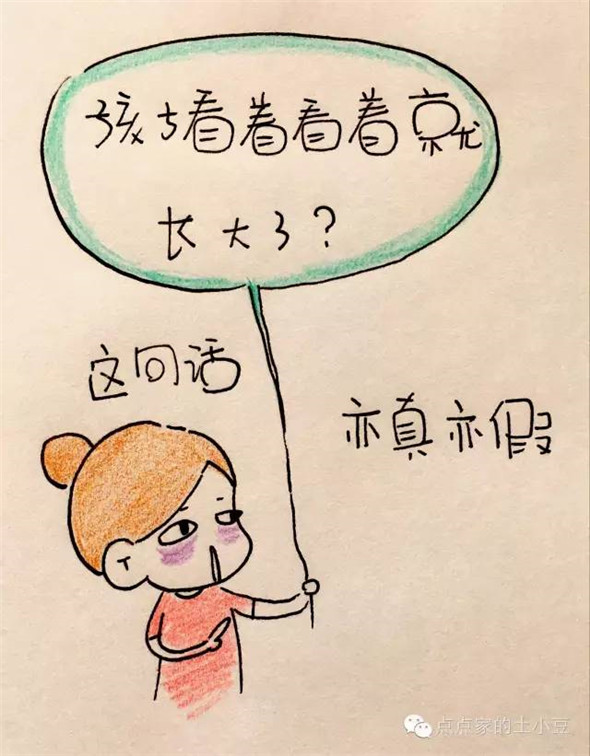 孩子看着看着就
长大了？
这句话
亦真亦假
点点家的土小豆